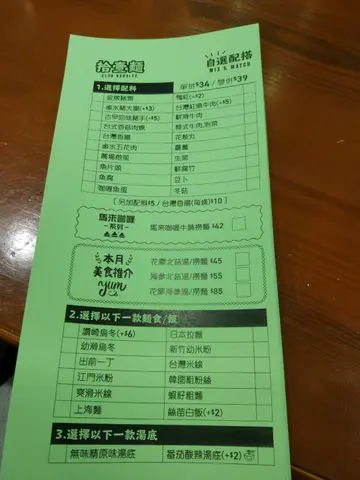 拾壹麵
自選配搭
MIX & MATCH
1.選擇配料 單拼$34 / 雙拼$39
金牌豬頸
鹵水豬大腸(+$3) 台灣紅燒牛肉(+$5)
古早回味豬手(+$5) 鮮滑牛肉
台式香茹肉燥 韓式牛肉泡菜
台灣香腸 花枝丸
鹵水五花肉 蘿蔔
生菜
魚片頭 鮮腐竹
魚腐 豆卜
咖喱魚蛋 冬菇
[ 另加配料$5 / 台灣香腸(每條)$10 ]
馬來咖喱 馬來咖喱牛腩撈麵 $42
本月
美食推介
yum
花膠北菇湯/撈麵 $45
海參北菇湯/撈麵 $55
花膠海參湯/撈麵 $85
2.選擇以下一款麵食/飯
讚崎烏冬(+$6) 日本拉麵
幼滑烏冬 新竹幼米粉
出前一丁 台灣米線
江門米粉 韓國粗粉絲
爽滑米線 蝦籽粗麵
上海麵 絲苗白飯(+$2)
3.選擇以下一款湯底
無味精原味湯底 番茄酸辣湯底(+$2)